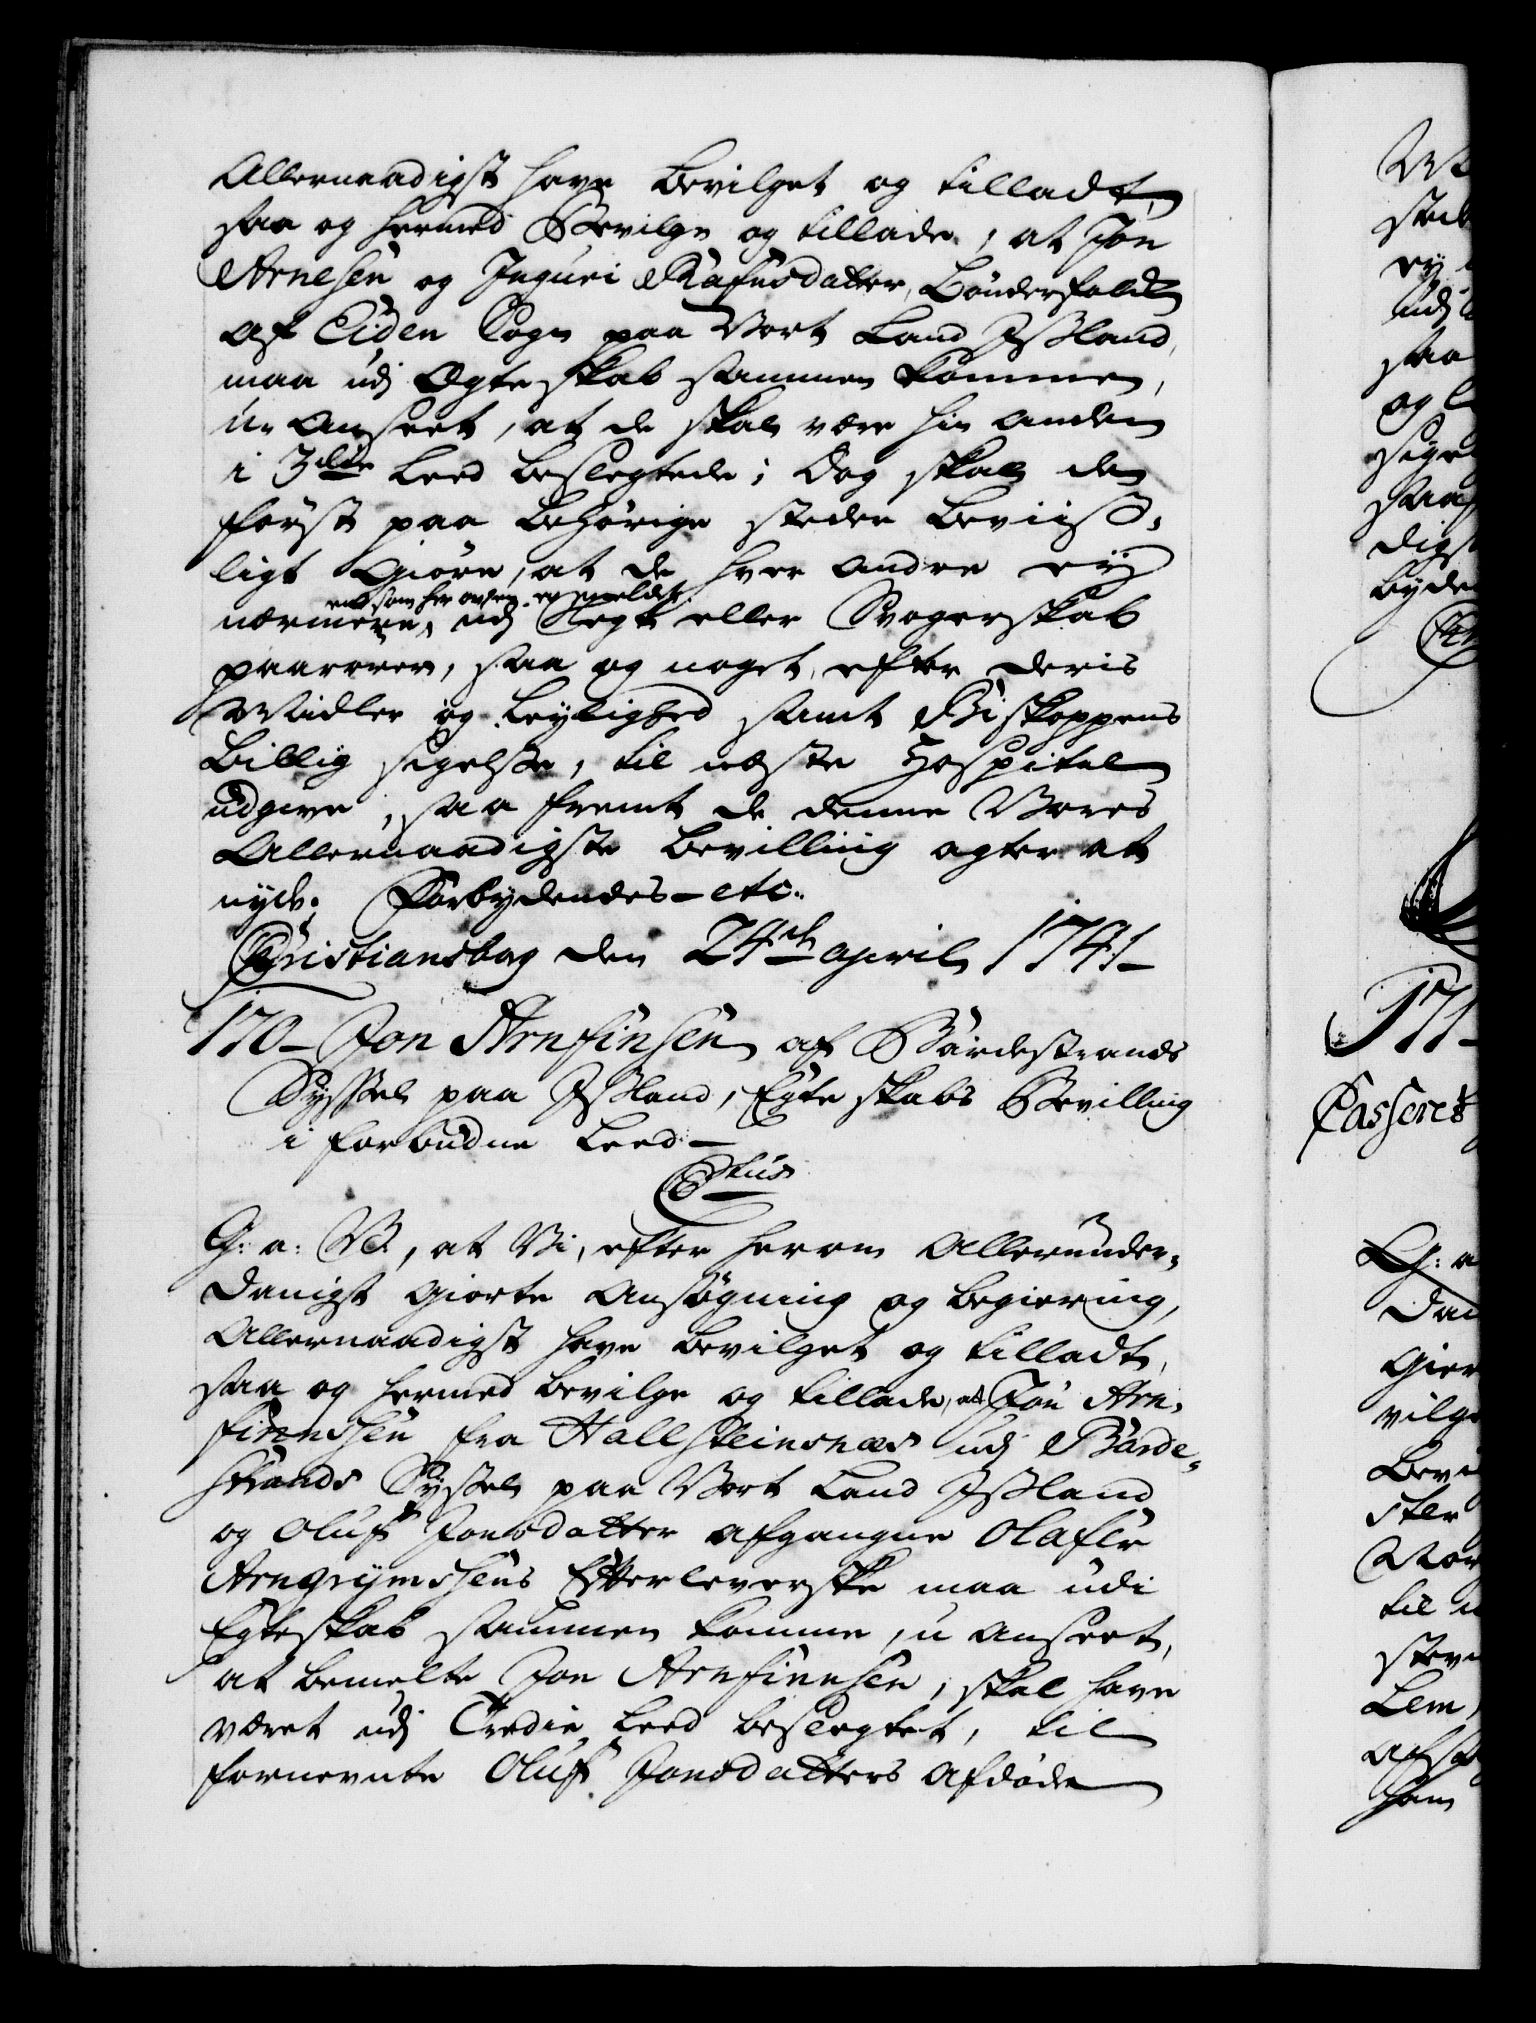 Allernaadigst have bevilget og tilladt,
saa og hermed Bevilge og tillade, at Jon
Arnesen og Inguri Rafnsdatter, bønderfolk
af Eiden Sogn paa Vort Land Ißland,
maa udj Ægteskab sammen komme,
u-anseet, at de skal være hin anden
i 3die Leed beslegtede; Dog skal de
først paa behørige steder beviiß-
ligt Giøre, at de hver andre ey
end som her oven er meldt
nærmere, udj Slegt eller Svogerskab
paarører, saa og noget, efter deris
Midler og leylighed samt Biskoppens
billig sigelse, til næste Hospital
udgive, saa fremt de denne Vores
Allernaadigste bevilling agter at
nyde. Forbydendes - etc.
Christiansborg den 24de april 1741-
170- Jon Arnfinsen af Bardestrands
Syssel paa Ißland, Egteskabs Bevilling
i forbudne Leed-
G: a: V., at Vi, efter herom Allerunder-
danigst giorte ansøgning og begiering,
Allernaadigst have bevilget og tilladt,
saa og hermed bevilge og tillade, at Jon Arn-
finnssen fra Hallsteinsnæs udj Barde-
strands Syssel paa Vort Land Ißland
og Oluff Jonsdatter afgangne Olafur
Arngrijmssens Efterleverske maa udi
Egteskab sammen komme, u anseet,
at bemelte Jon Arnfinnsen, skal have
været udj Tredie Leed beslegtet, til
fornevnte Oluff Jonsdatters afdøde
171-
Passeret
G: a